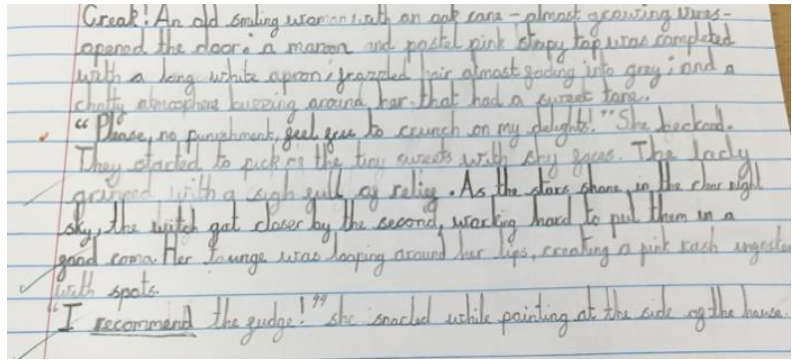 Creak! An old smiling woman with an oak cane - almost growing vines -
opened the door. a maroon and pastel pink stripy top was completed
with a long white apron; frazzled hair almost fading into grey; and a
chatty atmosphere buzzing around her that had a sweet tone.
"Please, no punishment, feel free to crunch on my delights!" She beckond.
They started to pick at the tiny sweets with shy faces. The lady
grinned with a sigh full of relief. As the stars shone, in the clear night
sky, the witch got closer by the second, working hard to put them in a
good coma. Her tounge was looping around her lips, creating a pink rash
with spots.
"I recommend the fudge!" she snacled while pointing at the side of the house.